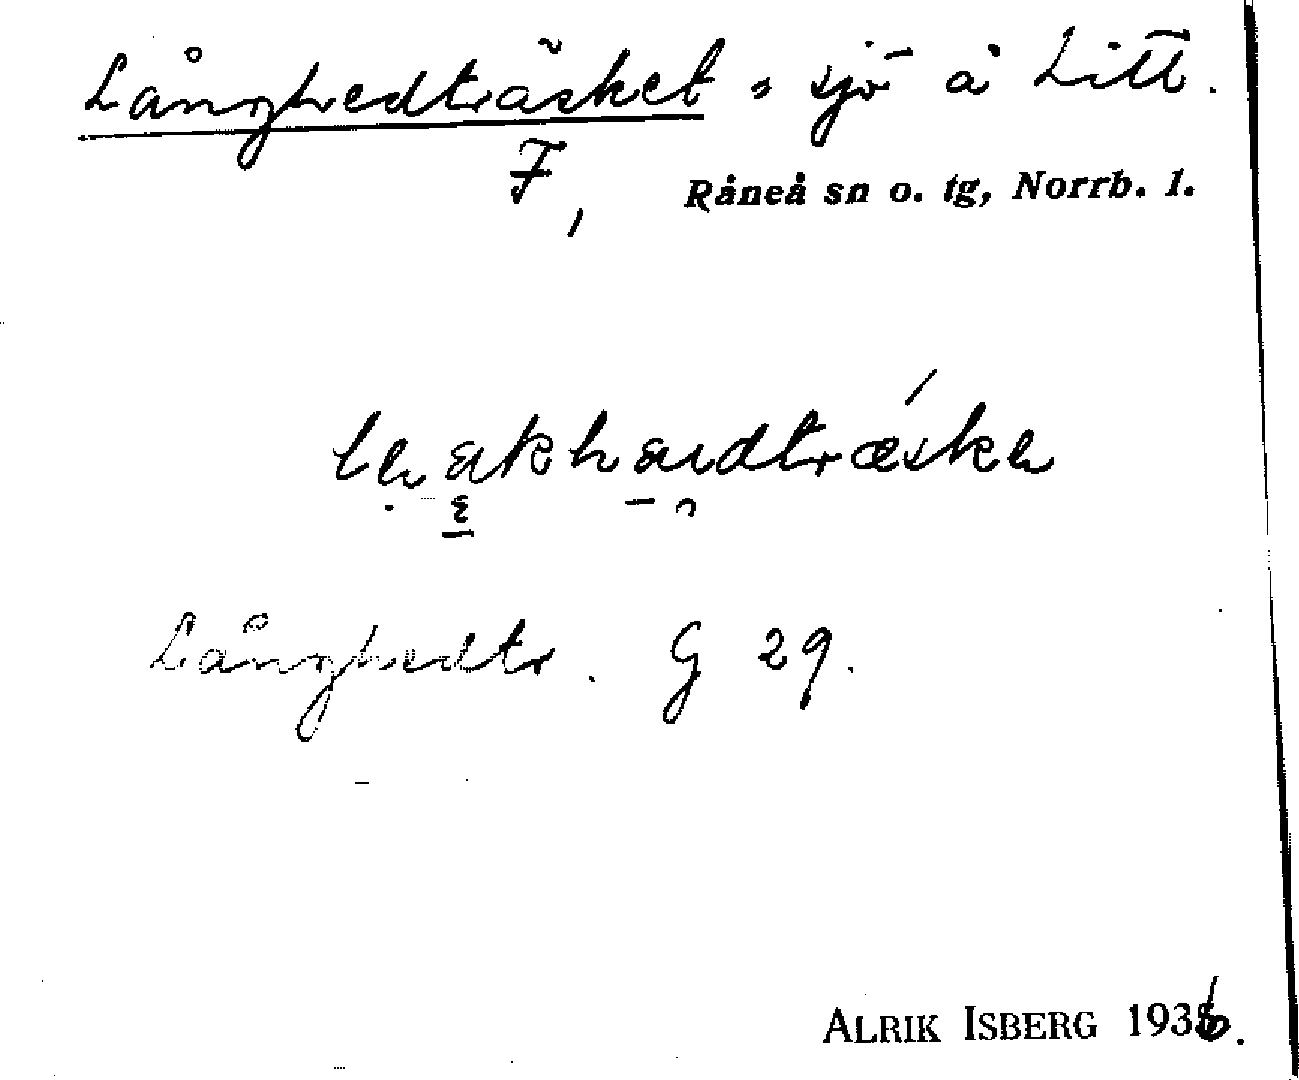 Långhedträsket, sjö å Litt.
F,
Råneå sn o. tg, Norrb. l.
Långhedtr. G 29.
ALRIK ISBERG 1936.